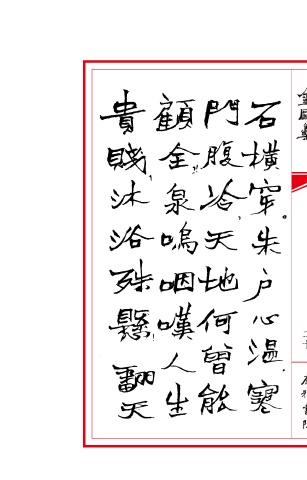 石橫穿。朱户心温。寒
門腹冷，天地何曾能
顧全。泉嗚咽，嘆人生
貴賤，沐浴殊懸。翻天